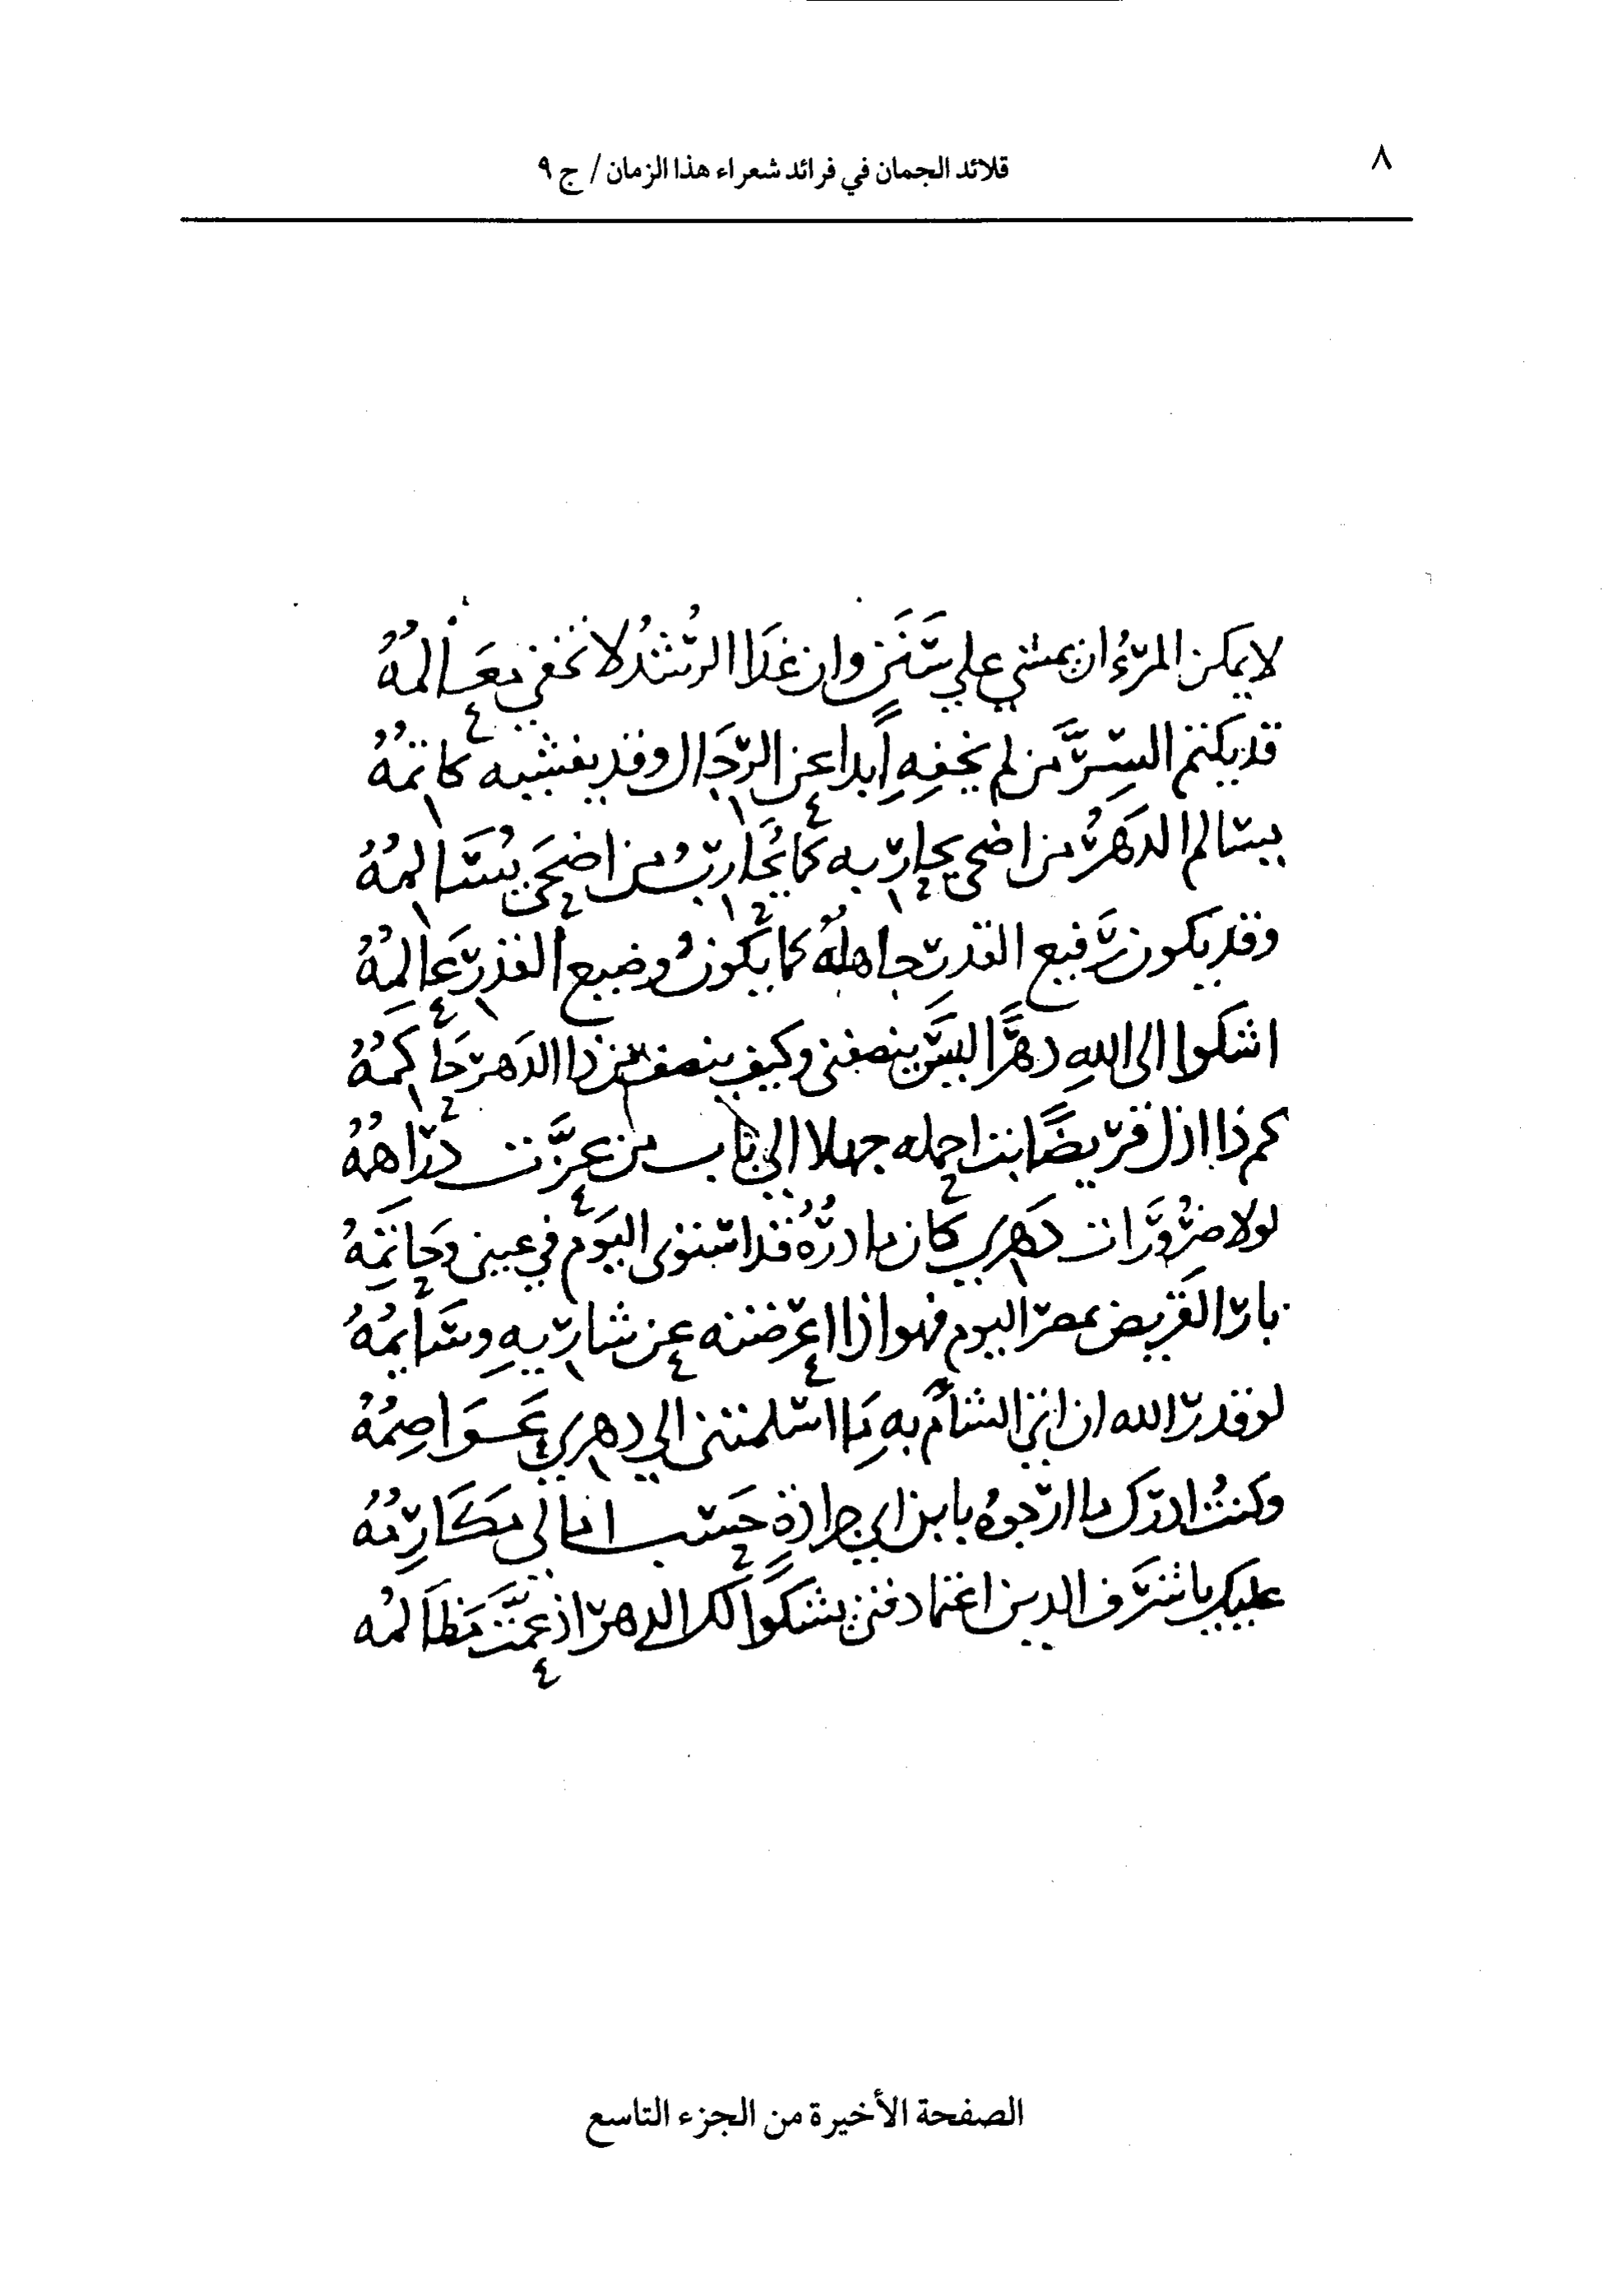 ٨
قلائد الجمان في فرائد شعراء هذا الزمان / ج ٩
لا يمكن المرءُ ان يمشي علي سَنَن وان غَدَا الرشدُ لا تخفي معَالمُهُ
قد يكتم السِرَّ من لم يخفِهِ أبداً عن الرجَال وقد يفشيه كاتمُهُ
يسالم الدهرُ من اضحي يحاربه كما يُحاربُ من اضحَى يُسَالمُهُ
وقد يكون رَفيع القدر جاهلُهُ كما يكونُ وضيع القدر عَالمُهُ
اشكوا الى اللهِ دهرًا ليسَ ينصفني وكيف ينصف من ذا الدهر حَاكمُهُ
كم ذا اذل قريضًا بت احمله جهلا الي باب من عزَّت دَراهمُهُ
لولا ضرُورَات دَهري كان ما درُّهُ قد استوى اليَوم في عيني وَخاتمُهُ
بار القَريض بمصر اليوم فهو اذا اعرضته عن شاريهِ وسَايمُهُ
لو قدر الله ان اتي الشأم به مَا اسلمتني الي دهري عَوَاصِمُهُ
وكنتُ ادرك ما ارجوهُ يا بن ابي جرادةٍ حَسب امالي مكَارِمُهُ
عليك يا شرَف الدين اعتماد فتى يشكوا لك الدهر اذ عمَّت مَظَالمُه
الصفحة الأخيرة من الجزء التاسع